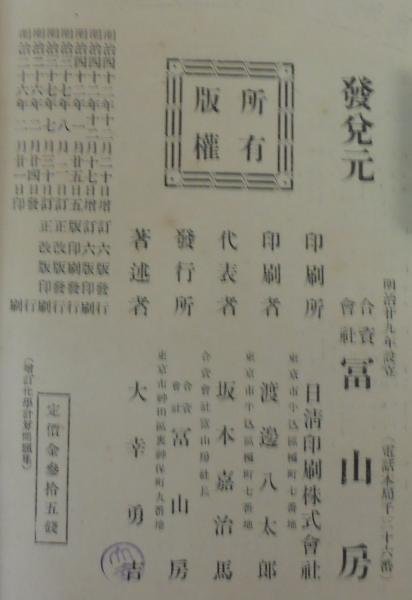 發兌元
明治廿九年設立
合資會社 冨山房
(電話本局千三十六番)
所有
版權
印刷所
東京市牛込區榎町七番地
日清印刷株式會社
印刷者
東京市牛込區榎町七番地
渡邊八太郎
代表者
合資會社冨山房社長
坂本嘉治馬
發行所
東京市神田區裏神保町九番地
合資會社 冨山房
著述者
大幸勇吉
明治四十二年十二月二十日增訂六版發行
明治四十二年十二月十七日增訂六版印刷
明治四十一年一月廿五日五版發行
明治三十七年八月一日訂正改版發行
明治三十七年七月三十日訂正改版印刷
明治二十六年二月廿四日發行
明治二十六年二月廿一日印刷
(增訂化學計算問題集)
定價金參拾五錢